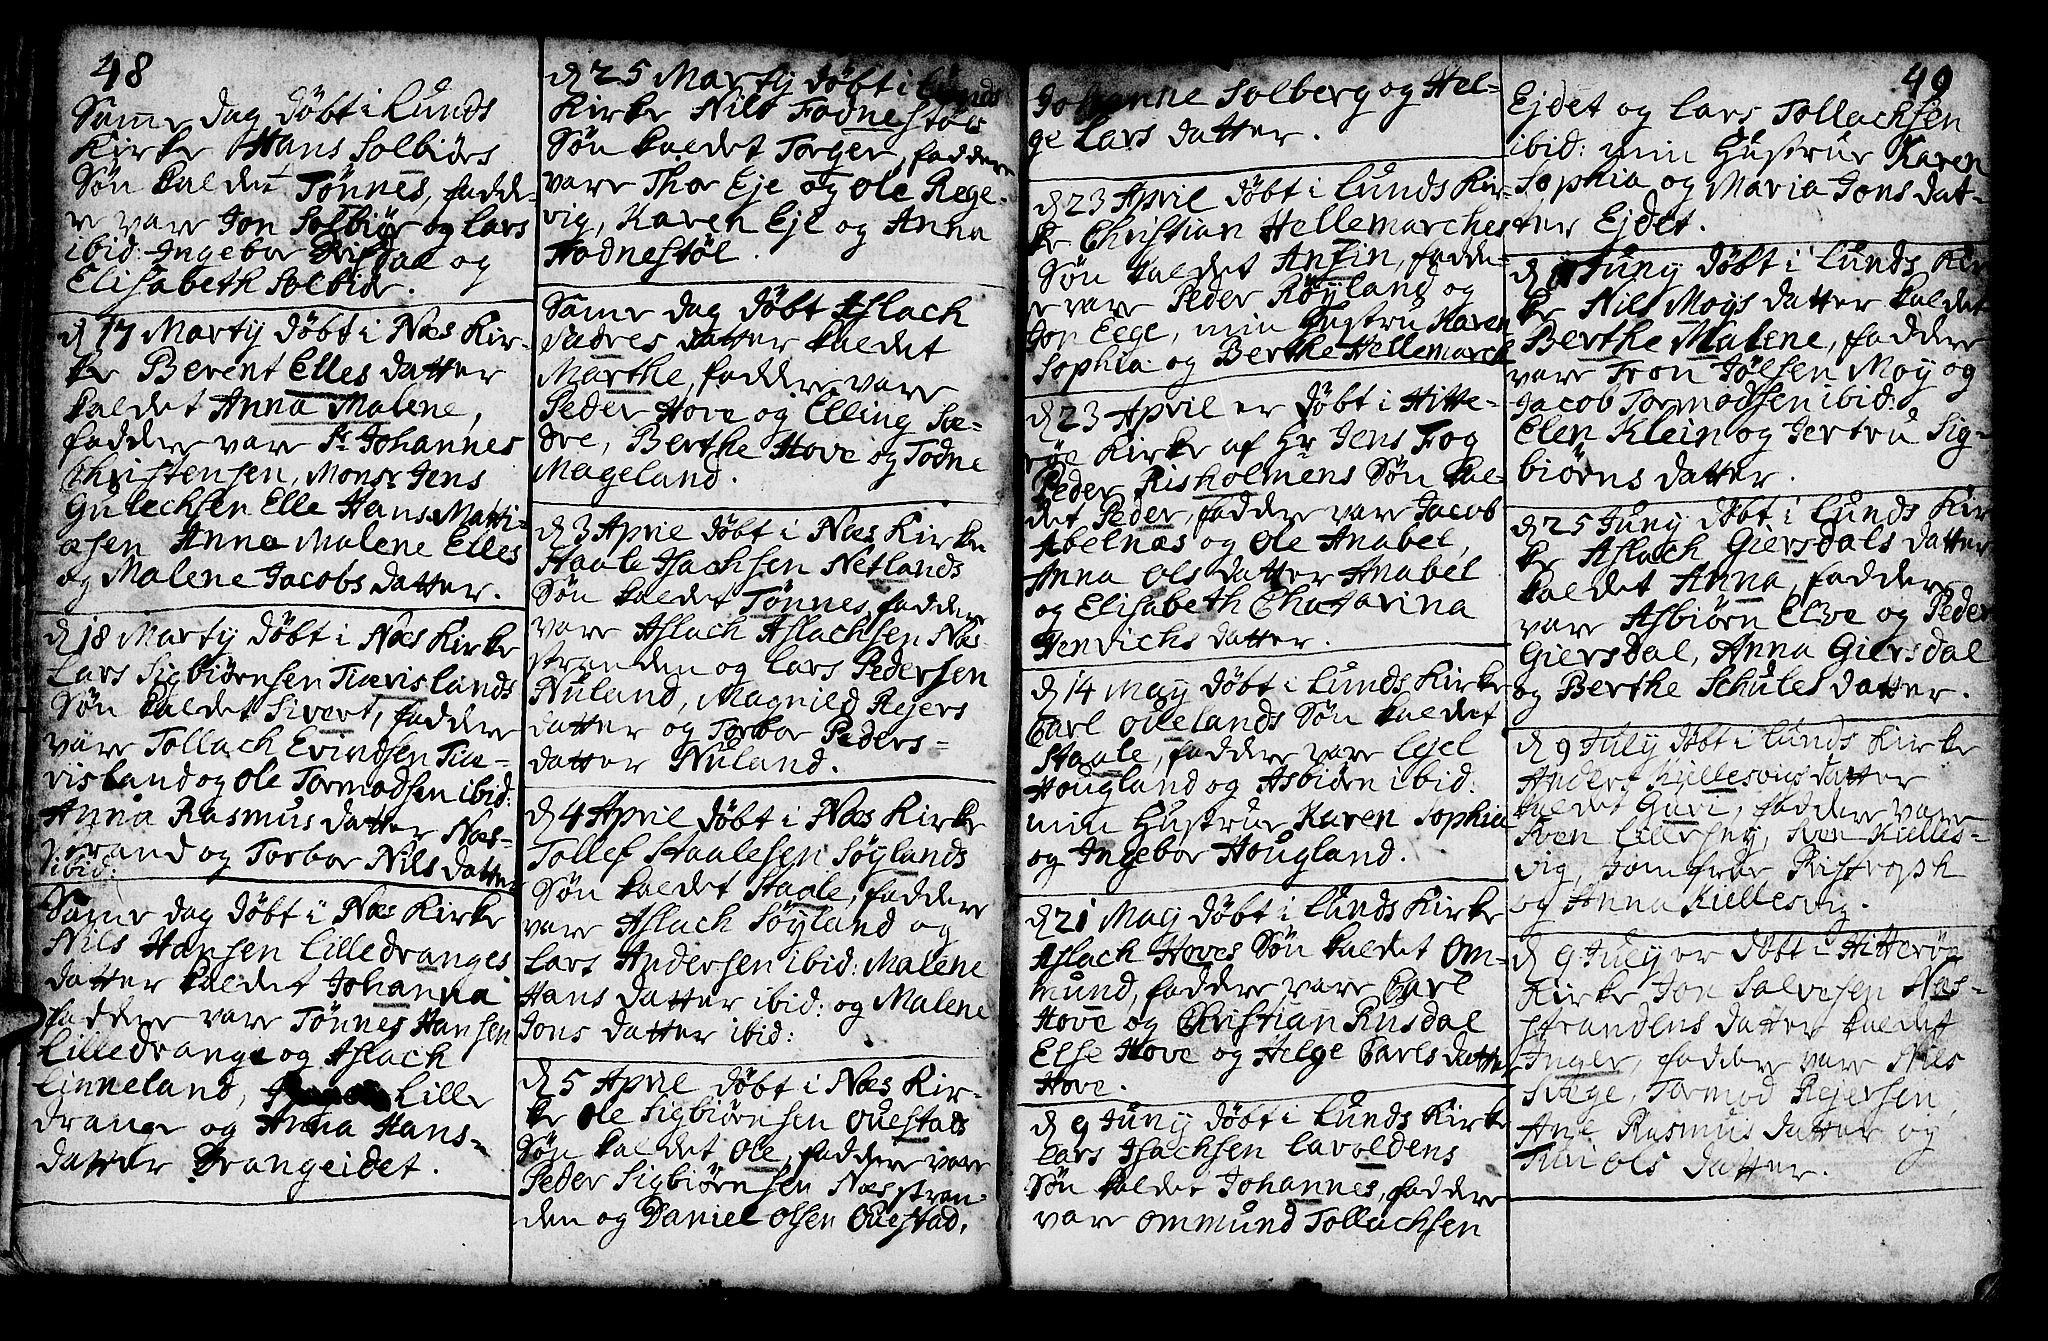 48
Samme dag døbt i Lunds
Kirke Hans Solbiørs
Søn kaldet Tønnes, fadde-
re vare Jon Solbiør og Lars
ibid: Ingebor Drisdal og
Elisabeth Solbiør.
d 17 Marty døbt i Næs Kir-
ke Berent Elles datter
kaldet Anna Malene,
faddere vare Sr Johannes
Christensen, Monsr Jens
Gulechsen Elle Hans Matti-
asen Anna Malene Elles
og Malene Jacobs datter.
d 18 Marty døbt i Næs Kirke
Lars Sigbiørnsen Tiævislands
Søn kaldet Sivert, faddere
vare Tollach Evindsen Tiæ-
visland og Ole Tormodsen ibid:
Anna Rasmus datter Næs-
strand og Torbor Nils datter
ibid:
Samme dag døbt i Næs Kirke
Nils Hansen Lilledranges
datter kaldet Johanna
faddere vare Tønnes Hansen
Lilledrange og Aslach
Linneland, Lille
drange og Anna Hans-
datter Drangeidet.
d 25 Marty døbt i Lunds
Kirke Nils Fodnestøls
Søn kaldet Torger, faddere
vare Thor Eje og Ole Rege-
vig, Karen Eje og Anna
Fodnestøl.
Samme dag døbt Aslach
Sædres datter kaldet
Marthe, faddere vare
Peder Hove og Elling Sæ-
dre, Berthe Hove og Todne
Mageland.
d 3 April døbt i Næs Kirke
Staale Isachsen Netlands
Søn kaldet Tønnes, faddere
vare Aslach Aslachsen Næs-
stranden og Lars Pedersen
Nuland, Magnild Rejers
datter og Torbor Peders-
datter Nuland.
d 4 April døbt i Næs Kirke
Tollef Staalesen Søylands
Søn kaldet Staale, faddere
vare Aslach Søyland og
Lars Andersen ibid: Malene
Hans datter ibid: og Malene
Jons datter ibid:
d 5 April døbt i Næs Kir-
ke Ole Sigbiørnsen Ouestads
Søn kaldet Ole, faddere vare
Peder Sigbiørnsen Næsstran-
den og Daniel Olsen Ouestad,
49
Johanne Solberg og Hel-
ge Lars datter.
d 23 April døbt i Lunds Kir-
ke Christian Hellemarches
Søn kaldet Anfin, fadde-
re vare Peder Røyland og
Jon Eege, min Hustru Karen
Sophia og Berthe Hellemarch
d 23 April er døbt i Hitte-
røe Kirke af Hr Jens Fog
Peder Risholmens Søn kal-
det Peder, faddere vare Jacob
Abelnæs og Ole Anabel,
Anna Ols datter Anabel
og Elisabeth Chatarina
Henrichs datter.
d 14 May døbt i Lunds Kirke
Carl Ouelands Søn kaldet
Staale, faddere vare Ejel
Hougland og Asbiørn ibid:
min Hustrue Karen Sophia
og Ingebor Hougland.
d 21 May døbt i Lunds Kirke
Aslach Hoves Søn kaldet Om-
mund, faddere vare Carl
Hove og Christian Rusdal
Else Hove og Helge Carls datter
Hove.
d 9 Juny døbt i Lunds Kirke
Lars Isachsen Lavoldens
Søn kaldet Johannes, faddere
vare Ommund Tollachsen
Ejdet og Lars Tollachsen
ibid: min Hustrue Karen
Sophia og Maria Jons dat-
ter Ejdet.
Juny døbt i Lunds Kir
ke Nils Moys datter kaldet
Berthe Malene, faddere
vare Tron Jølsen Moy og
Jacob Tormodsen ibid:
Elen Klein og Jertru Sig-
biørns datter.
d 25 Juny døbt i Lunds Kir
ke Aslach Giersdals datter
kaldet Anna, faddere
vare Asbiørn Elve og Peder
Giersdal, Anna Giersdal
og Berthe Schules datter.
d 9 July døbt i Lunds Kirke
Anders Kiellesvigs datter
kaldet Guri, faddere vare
Sven Lillesny, Sven Kielles-
vig, Jomfrue Ristroph
og Anna Kiellesvig.
d 9 July er døbt i Hitterøe
Kirke Jon Salvesen Næs-
strandens datter kaldet
Inger, faddere vare Nils
Svege, Tormod Rejersen,
Ane Rasmus datter og
Siri Ols datter.